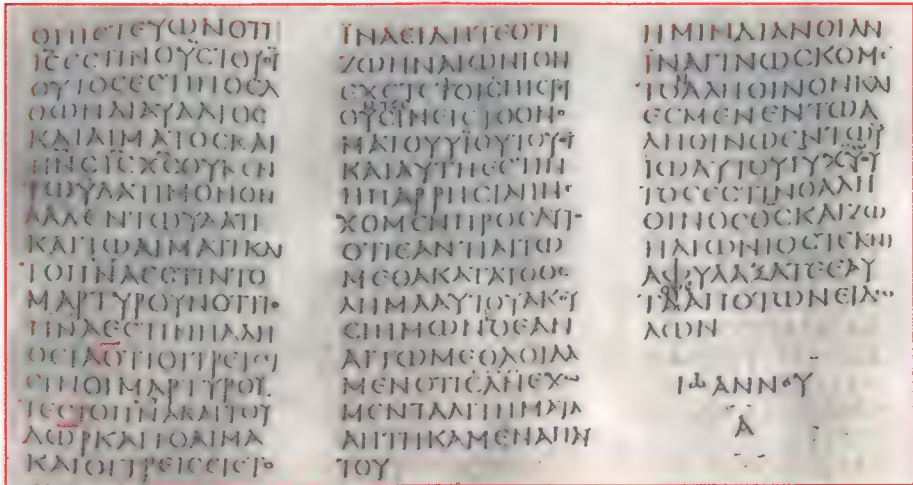 ΟΠΙCΤΕΥΩΝΟΤΙ
ΙCΕCΤΙΝΟΥCΤΟΥΘΥ
ΟΥΤΟCΕCΤΙΝΟΕΛ
ΘΩΝΔΙΑΥΔΑΤΟC
ΚΑΙΑΙΜΑΤΟCΚΑΙ
ΠΝCΙCΧCΟΥΚΕΝ
ΤΩΥΔΑΤΙΜΟΝΟΝ
ΑΛΛΕΝΤΩΥΔΑΤΙ
ΚΑΙΤΩΑΙΜΑΤΙΚΑΙ
ΤΟΠΝΑΕCΤΙΝΤΟ
ΜΑΡΤΥΡΟΥΝΟΤΙΤΟ
ΠΝΑΕCΤΙΝΗΑΛΗ
ΘΕΙΑΟΤΙΟΙΤΡΕΙCΕΙ
CΙΝΟΙΜΑΡΤΥΡΟΥ
ΤΕCΤΟΠΝΑΚΑΙΤΟΥ
ΔΩΡΚΑΙΤΟΑΙΜΑ
ΚΑΙΟΙΤΡΕΙCΕΙCΤΟ
ΪΝΑΕΙΔΗΤΕΟΤΙ
ΖΩΗΝΑΙΩΝΙΟΝ
ΕΧΕΤΕΤΟΙCΠΙCΤΕΥ
ΟΥCΙΝΕΙCΤΟΟΝΟ
ΜΑΤΟΥΥΪΟΥΤΟΥΘΥ
ΚΑΙΑΥΤΗΕCΤΙΝ
ΗΠΑΡΡΗCΙΑΗΝΕ
ΧΟΜΕΝΠΡΟCΑΥΤΟ
ΟΤΙΕΑΝΤΙΑΙΤΩ
ΜΕΘΑΚΑΤΑΤΟΘΕ
ΛΗΜΑΑΥΤΟΥΑΚΟΥ
ΕΙΗΜΩΝΟΕΑΝ
ΑΙΤΩΜΕΘΑΟΙΔΑ
ΜΕΝΟΤΙΕΑΝΕΧΟ
ΜΕΝΤΑΑΙΤΗΜΑΤΑ
ΑΗΤΗΚΑΜΕΝΑΠΑΥ
ΤΟΥ
ΗΜΙΝΔΙΑΝΟΙΑΝ
ΙΝΑΓΙΝΩCΚΟΜΕ
ΤΟΑΛΗΘΙΝΟΝΚΑΙ
ΕCΜΕΝΕΝΤΩΑ
ΛΗΘΙΝΩΕΝΤΩΥ
ΙΩΑΥΤΟΥΙΥΧΥΟΥ
ΤΟCΕCΤΙΝΟΑΛΗ
ΘΙΝΟCΘCΚΑΙΖΩ
ΗΑΙΩΝΙΟCΤΕΚΝΙ
ΑΦΥΛΑΞΑΤΕΕΑΥ
ΤΑΑΠΟΤΩΝΕΙΔΩ
ΛΩΝ
ΙΩΑΝΝΟΥ
Α